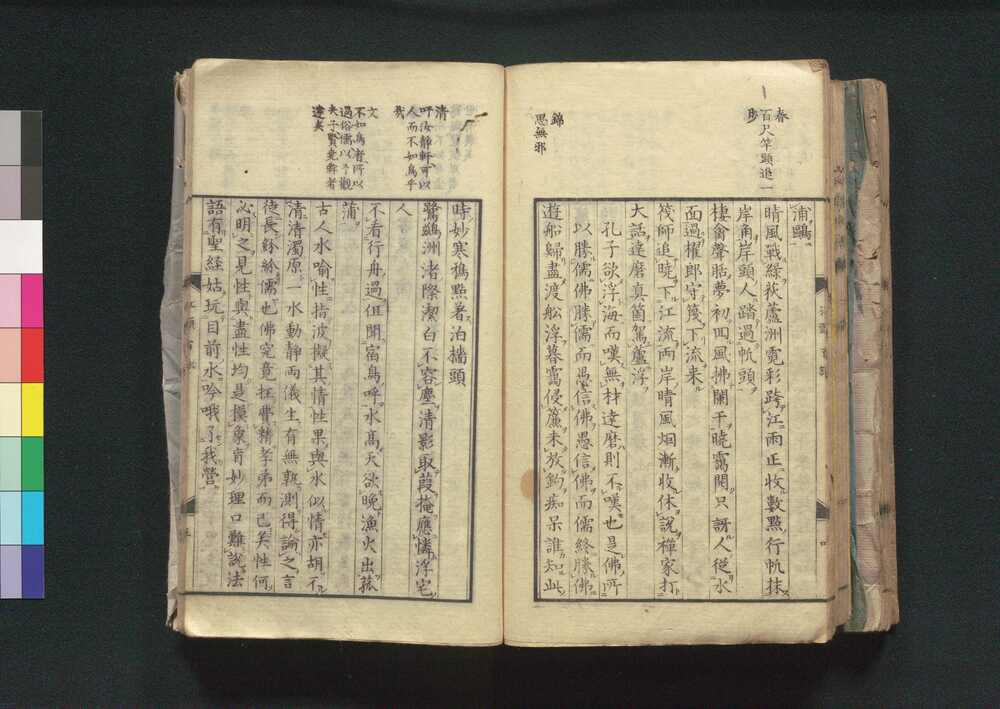 春
百尺竿頭進一
步
錦
思無邪
浦鷗
晴風戰綠荻蘆洲霓彩跨江雨正收數點行帆抹
岸角岸頭人踏過帆頭
棲禽聲聒夢初回風拂闌干曉靄開只訝人從水
面過櫂郎守筏下流來
筏師追曉下江流兩岸晴風烟漸收休說禪家打
大話達磨真箇駕蘆浮
孔子欲浮海而嘆無材達磨則不嘆也是佛所
以勝儒佛勝儒而愚信佛愚信佛而儒終勝佛
遊船歸盡渡船浮暮靄侵簾未放鈎痴呆誰知此
清
呼汝靜軒可以
人而不如鳥乎
我
文
不如鳥者所以
過俗儒以予觀
夫子賢堯舜者
遠矣
時妙寒鴉點著泊檣頭
鷺鷀洲渚際潔白不容塵清影取葭掩應憐浮宅
人
不看行舟過但聞宿鳥呼水高天欲晚漁火出菰
蒲
古人水喻性指波擬其情性果與水似情亦胡不
清清濁原一水動靜兩儀生有無孰測得論之言
徒長紛紛儒也佛究竟在彝精孝弟而已矣性何
必明之見性與盡性均是摸象盲妙理口難說法
語有聖経姑玩目前水吟哦了我營